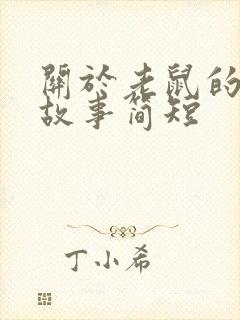 關於老鼠的
故事简短
丁小希